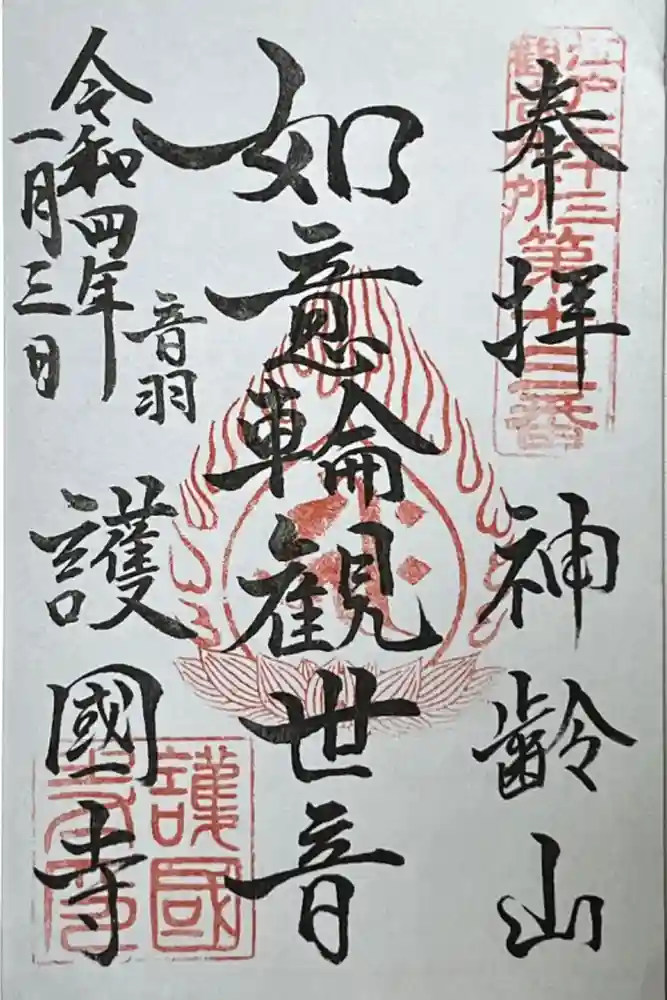 奉拝
神齢山
江戸三十三
観音札所
第十三番
如意輪観世音
音羽
護國寺
令和四年
一月三日
護國